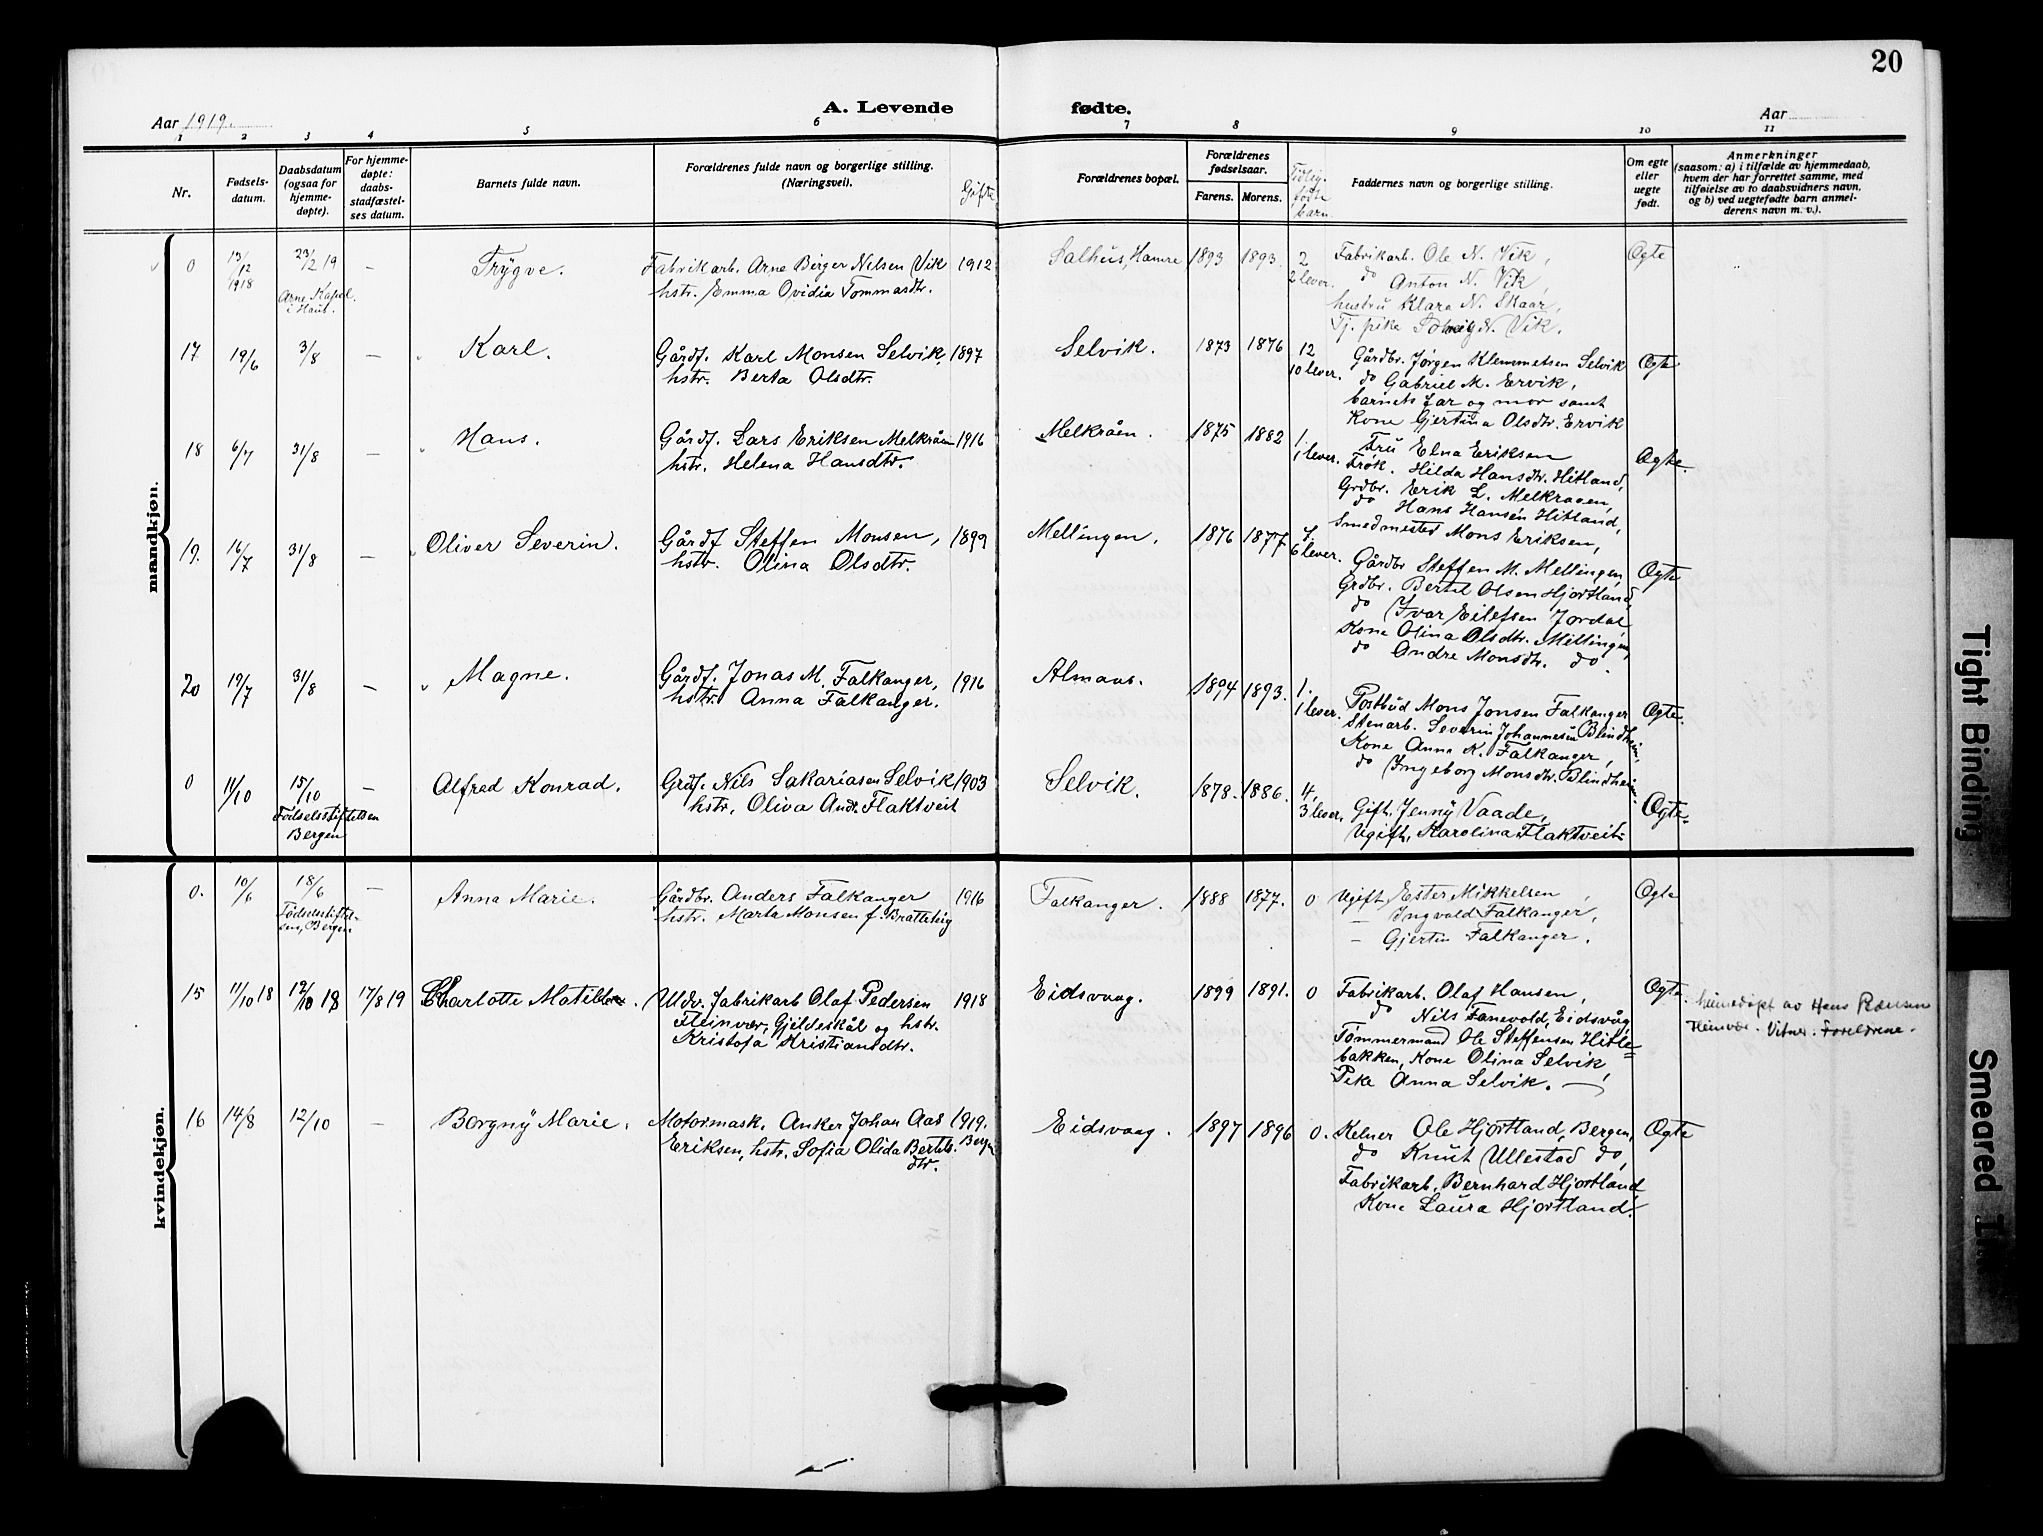 20
A. Levende fødte.
Aar 1919.
Aar
1 2 3 4 5 6 7 8 9 10 11
Nr.
Fødsels-
datum.
Daabsdatum
(ogsaa for
hjemme-
døpte).
For hjemme-
døpte:
daabs-
stadfæstel-
ses datum.
Barnets fulde navn.
Forældrenes fulde navn og borgerlige stilling.
(Næringsvei).
Gifte
Forældrenes bopæl.
Forældrenes
fødselsaar.
Farens. Morens.
Tidlig.
fødte
barn.
Faddernes navn og borgerlige stilling.
Om egte
eller
uegte
født.
Anmerkninger
(saasom: a) i tilfælde av hjemmedaab,
hvem der har forrettet samme, med
tilføielse av to daabsvidners navn,
og b) ved uegtefødte barn anmel-
derens navn m. v.).
mandkjøn.
0 13/12 1918 23/2 19 — Trygve. Fabrikarb. Arne Birger Nilsen Vik 1912
Arne Kapel.
i Haus.
hstr. Emma Ovidia Tommasdtr.
Salhus, Hamre 1893 1893. 2
2 lever.
Fabrikarb. Ole N. Vik,
do Anton N. Vik,
hustru Klara N. Skaar,
Tj. pike Solveig N. Vik.
Ægte
17 19/6 3/8 — Karl. Gårdf. Karl Monsen Selvik, 1897
hstr. Berta Olsdtr.
Selvik. 1873 1876 12
10 lever.
Gårdbr. Jørgen Klemmetsen Selvik
do Gabriel M. Ervik,
barnets far og mor samt
Kone Gjertina Olsdtr. Ervik
Ægte
18 6/7 31/8 — Hans. Gårdf. Lars Eriksen Melkråen 1916
hstr. Helena Hansdtr.
Melkråen. 1875 1882 1.
1 lever.
Fru Elna Eriksen
Frøk. Hilda Hansdtr. Hitland,
Grdbr. Erik L. Melkraaen,
do Hans Hansen Hitland,
Smedmester Mons Eriksen,
Ægte.
19. 16/7 31/8 — Oliver Severin. Gårdf Steffen Monsen, 1899
hstr. Olina Olsdtr.
Mellingen. 1876 1877. 7.
6 lever.
Gårdbr Steffen M. Mellingen,
Grdbr. Bertel Olsen Hjortland,
do Ivar Eilefsen Jordal
Kone Olina Olsdtr. Mellingen,
do Andre Monsdtr. do.
Ægte
20 19/7 31/8 — Magne. Gårdf. Jonas M. Falkanger, 1916
hstr. Anna Falkanger.
Almaas. 1894 1893. 1.
1 lever.
Postbud Mons Jonsen Falkanger
Stenarb. Severin Johannesen Blindheim,
Kone Anna K. Falkanger,
do Ingeborg Monsdtr. Blindheim.
Ægte.
0 11/10 15/10 — Alfred Konrad. Grdf. Nils Sakariasen Selvik 1903
Fødselsstiftelsen
Bergen
hstr. Oliva Andr. Flaktveit
Selvik. 1878. 1886. 4,
3 lever,
Gift, Jenny Vaade,
Ugift, Karolina Flaktveit
Ægte.
kvindekjøn.
0. 10/6 18/6 — Anna Marie. Gårdbr. Anders Falkanger 1916
Fødselsstiftel-
sen, Bergen
hstr. Marta Monsen f. Bratteteig
Falkanger. 1888 1877. 0
Ugift, Ester Mikkelsen,
— Ingvald Falkanger,
— Gjertin Falkanger.
Ægte
15 11/10 18 19/10 18 17/8 19 Charlotte Matilde. Udv. fabrikarb Olaf Pedersen 1918
Fleinvær, Gjeldeskål og hstr.
Kristofa Kristiansdtr.
Eidsvaag. 1899 1891. 0
Fabrikarb. Olaf Hansen,
do Nils Fanevold, Eidsvåg,
Tømmermand Ole Steffensen Hitle=
bakken, Kone Olina Selvik,
Pike Anna Selvik. —
Ægte.
heimedøpt av Hans Pedersen
Vitner. Foreldrene.
16 14/8 12/10 — Borgny Marie. Motormask. Anker Johan Aas 1919.
Eriksen, hstr. Sofia Olida Bertels.
dtr.
Eidsvaag. 1897 1896 0.
Kelner Ole Hjortland, Bergen,
do Knut Ullestad do,
Fabrikarb. Bernhard Hjortland,
Kone Laura Hjortland.
Ægte
Tight Binding
Smeared